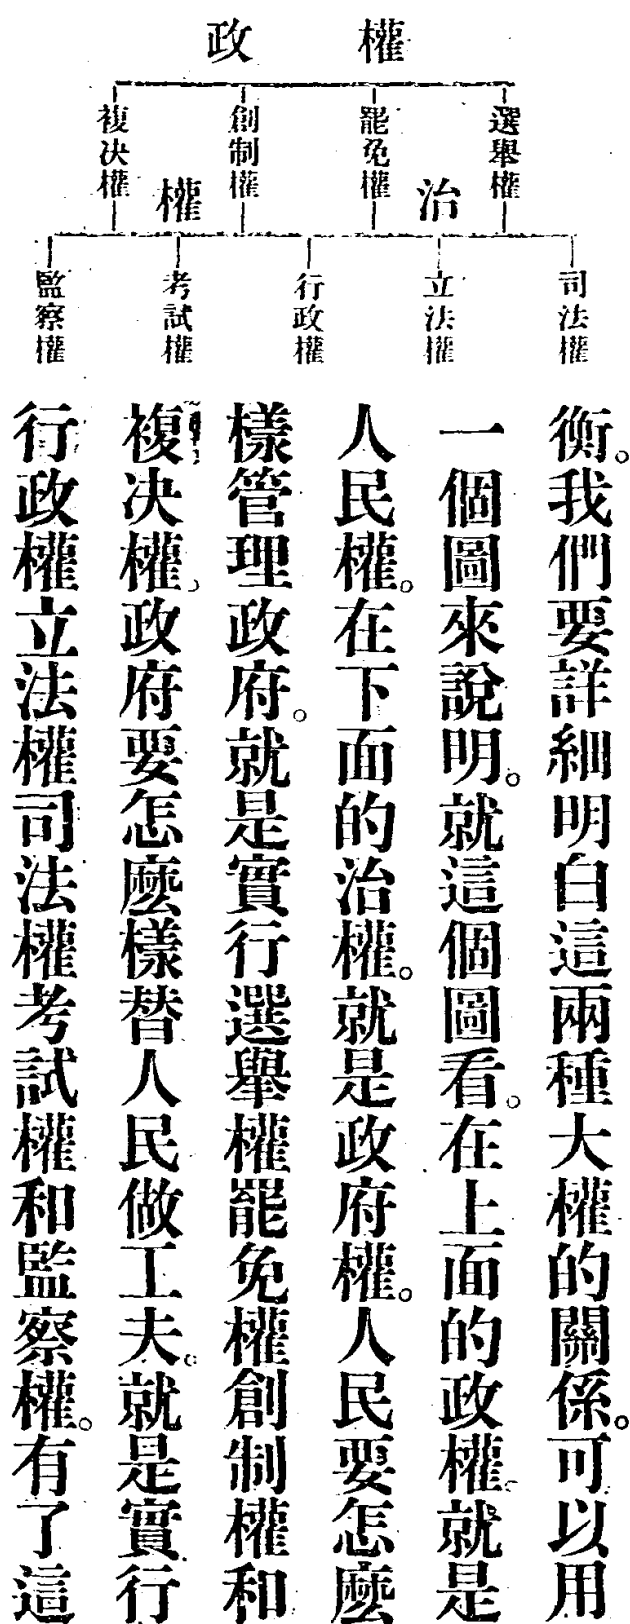 政權
選舉權
罷免權
創制權
複决權
治權
司法權
立法權
行政權
考試權
監察權
衡。我們要詳細明白這兩種大權的關係。可以用
一個圖來說明。就這個圖看。在上面的政權。就是
人民權。在下面的治權。就是政府權。人民要怎麼
樣管理政府。就是實行選舉權罷免權創制權和
複决權。政府要怎麼樣替人民做工夫。就是實行
行政權立法權司法權考試權和監察權。有了這